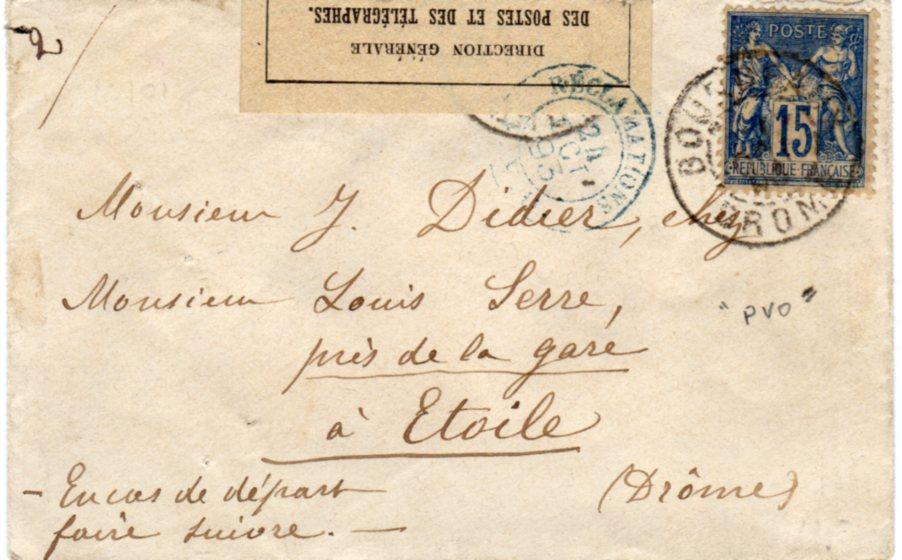 2
DIRECTION GÉNÉRALE
DES POSTES ET DES TÉLÉGRAPHES.
RÉCLAMATIONS
2A
OCT
93
POSTES
15
REPUBLIQUE FRANÇAISE
BOURG
DROME
Monsieur J. Didier, chez
Monsieur Louis Serre,
près de la gare
à Etoile
(Drôme)
"PVO"
- En cas de départ
faire suivre. -